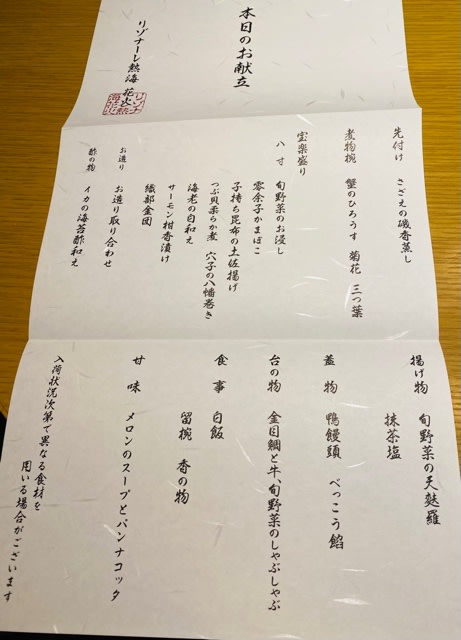 本日のお献立
リゾナーレ熱海 花火
先付け さざえの磯香蒸し
煮物椀 蟹のひろうす 菊花 三つ葉
宝楽盛り
八寸 旬野菜のお浸し
零余子かまぼこ
子持ち昆布の土佐揚げ
つぶ貝柔らか煮 穴子の八幡巻き
海老の白和え
サーモン柑香漬け
織部金団
お造り お造り取り合わせ
酢の物 イカの海苔酢和え
揚げ物 旬野菜の天麩羅
抹茶塩
蓋物 鴨饅頭 べっこう餡
台の物 金目鯛と牛、旬野菜のしゃぶしゃぶ
食事 白飯
留椀 香の物
甘味 メロンのスープとパンナコッタ
入荷状況次第で異なる食材を
用いる場合がございます